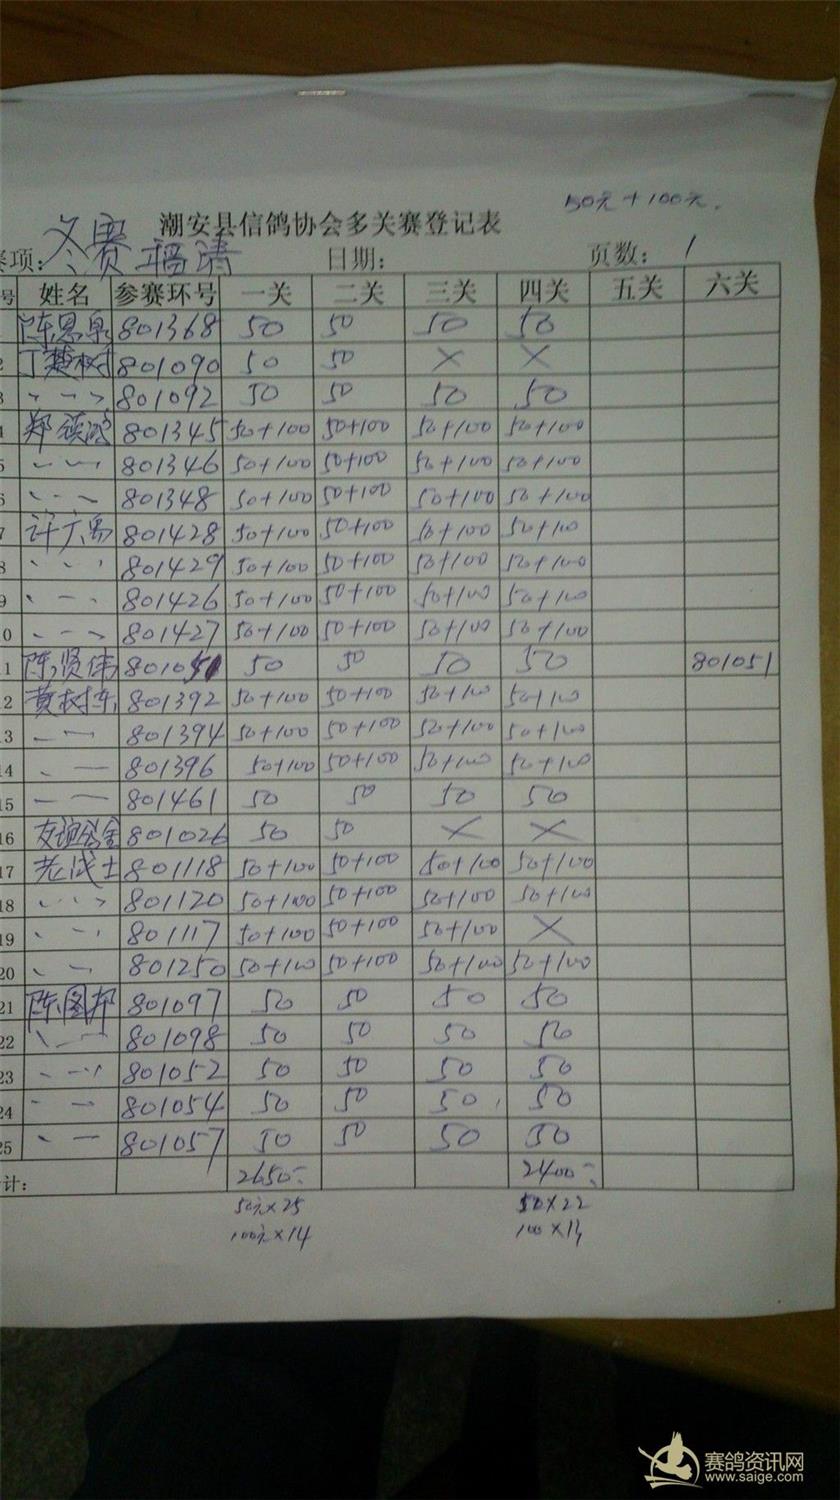 50元+100元.
潮安县信鸽协会多关赛登记表
赛项: 冬赛福清 日期: 页数: 1
号 姓名 参赛环号 一关 二关 三关 四关 五关 六关
陈恩泉 801368 50 50 50 50
2 丁楚树 801090 50 50 × ×
3 〃 801092 50 50 50 50
4 郑 801345 50+100 50+100 50+100 50+100
5 〃 801346 50+100 50+100 50+100 50+100
6 〃 801348 50+100 50+100 50+100 50+100
7 许 801428 50+100 50+100 50+100 50+100
8 〃 801429 50+100 50+100 50+100 50+100
9 〃 801426 50+100 50+100 50+100 50+100
0 〃 801427 50+100 50+100 50+100 50+100
11 陈贤伟 801051 50 50 50 50 801051
12 黄树东 801392 50+100 50+100 50+100 50+100
13 〃 801394 50+100 50+100 50+100 50+100
14 〃 801396 50+100 50+100 50+100 50+100
15 〃 801461 50 50 50 50
16 友谊鸽舍 801026 50 50 × ×
17 老战士 801118 50+100 50+100 50+100 50+100
18 〃 801120 50+100 50+100 50+100 50+100
19 〃 801117 50+100 50+100 50+100 ×
20 〃 801250 50+100 50+100 50+100 50+100
21 陈图邦 801097 50 50 50 50
22 〃 801098 50 50 50 50
23 〃 801052 50 50 50 50
24 〃 801054 50 50 50 50
25 〃 801057 50 50 50 50
计: 2650 2400
50元×25 50×22
100元×14 100×13
赛鸽资讯网
www.saige.com